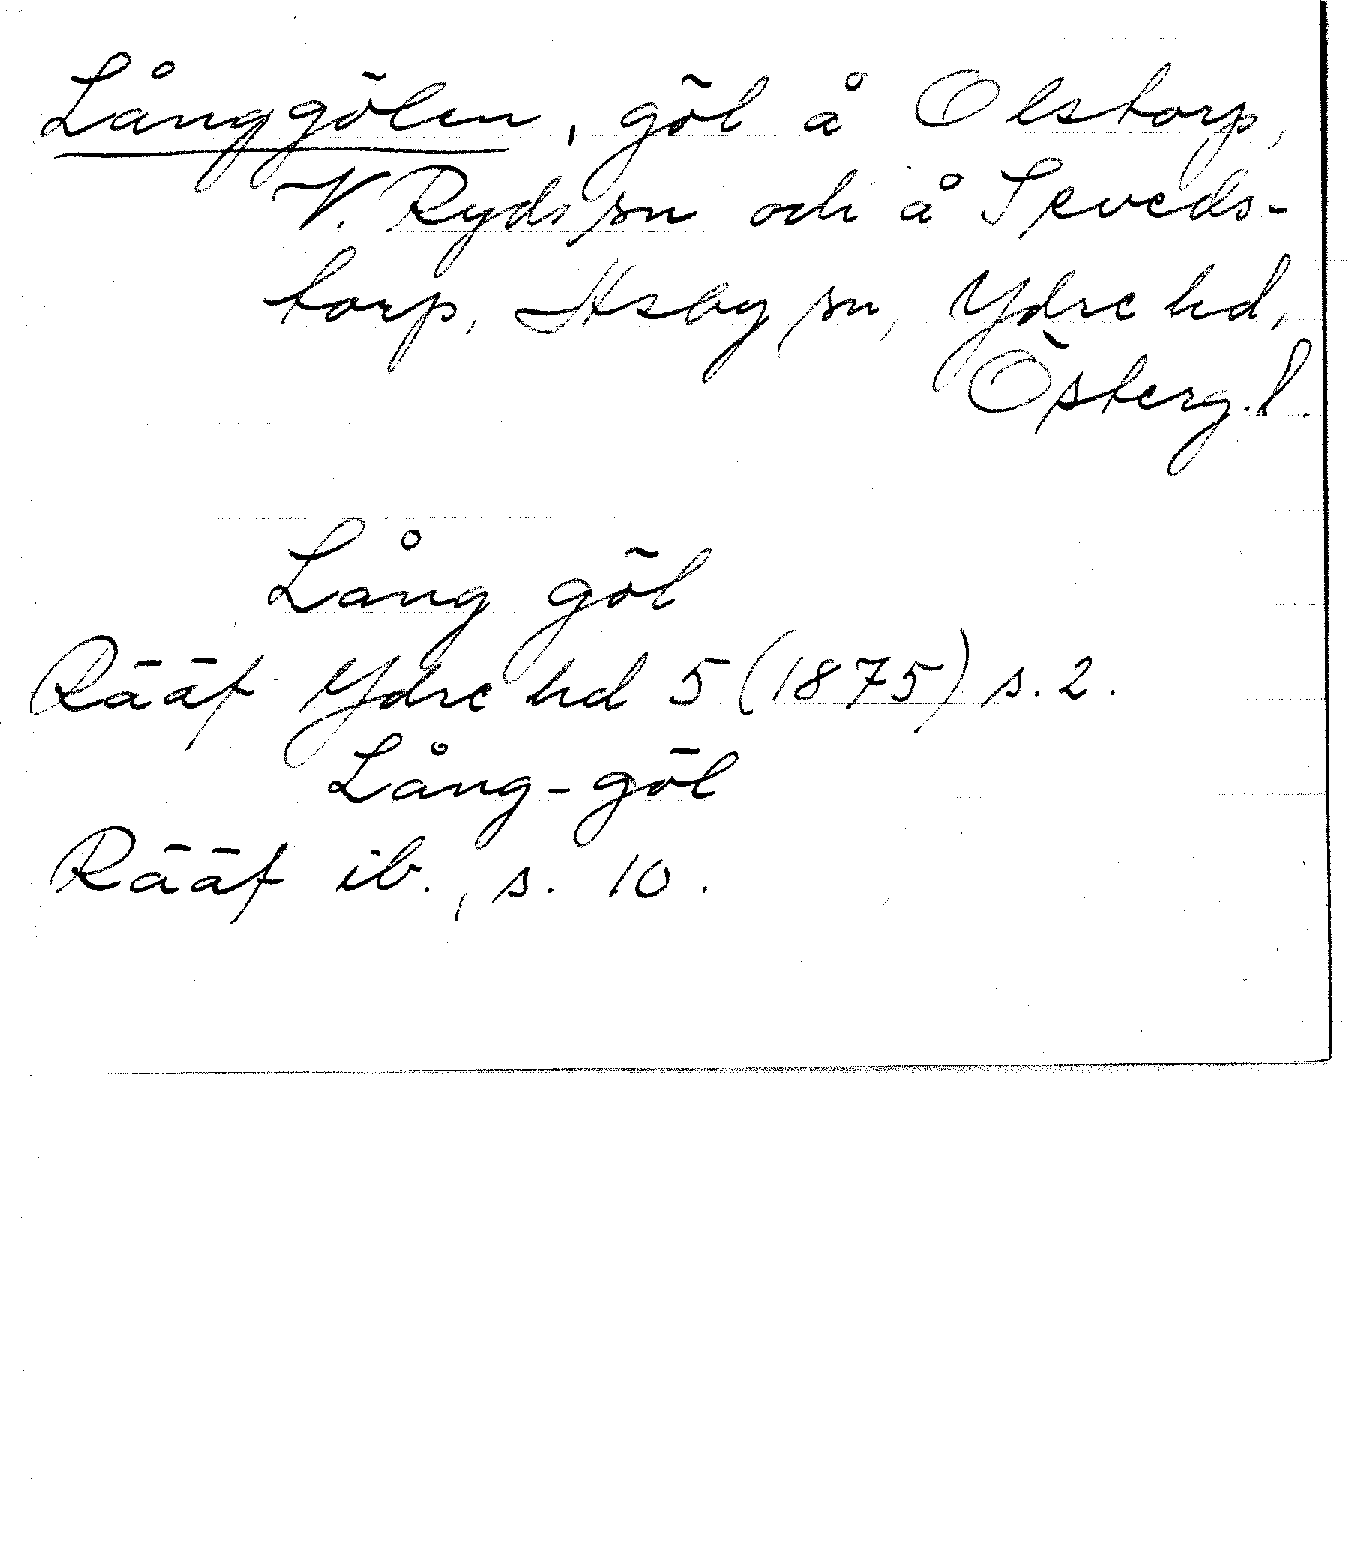 Långgölen, göl å Olstorp,
V. Ryds sn och å Seveds-
torp, Asby sn, Ydre hd,
Österg. l.
Lång göl
Rääf Ydre hd 5 (1875) s. 2.
Lång-göl
Rääf ib., s. 10.